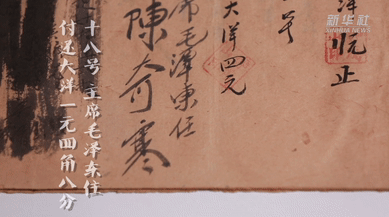 新华社
XINHUA NEWS
洋
元止
号
大洋四元
席毛澤東任
陳奇寒
十八号 主席毛泽东任
付还大洋一元四角八分